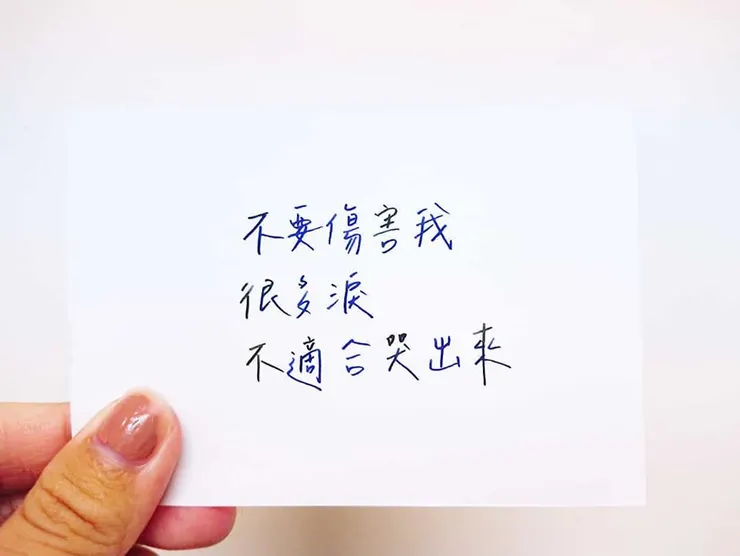 不要傷害我
很多淚
不適合哭出來